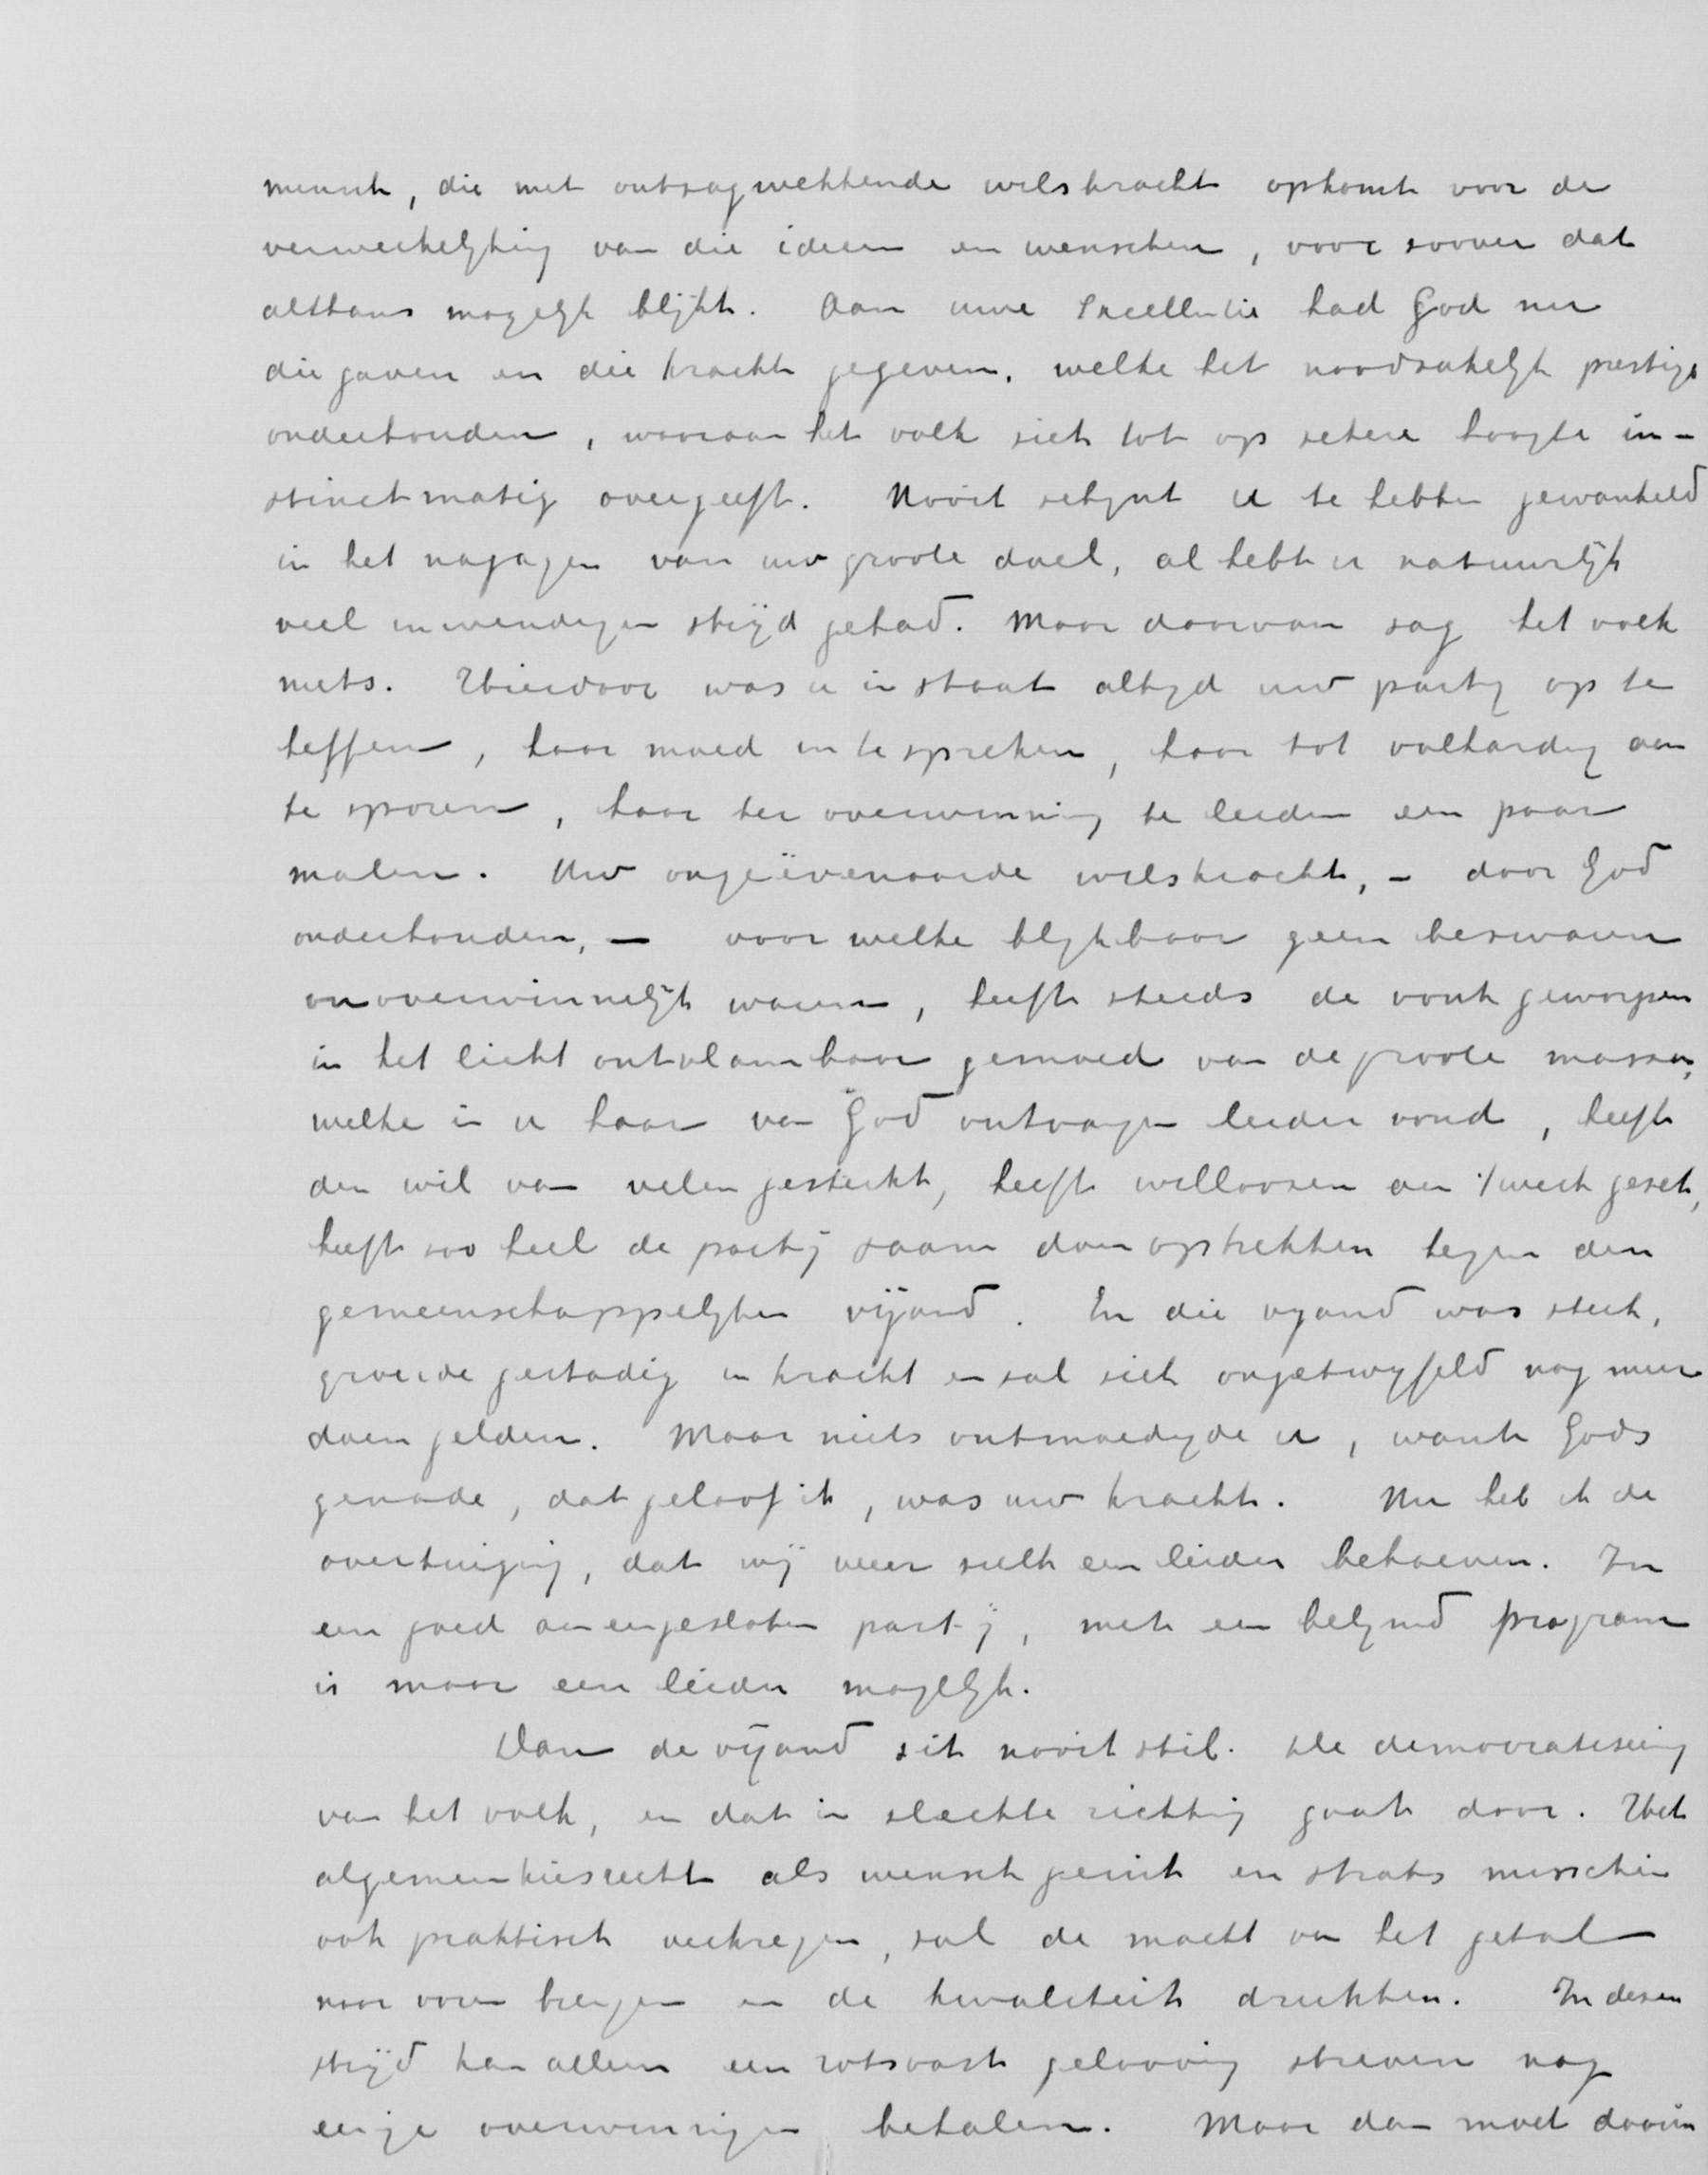 mensch, die met ontzagwekkende wilskracht opkomt voor de
verwerkelijking van die ideeën en wenschen, voor zoover dat
althans mogelijk blijkt. Aan uwe Excellentie had God nu
die gaven en die kracht gegeven, welke het noodzakelijk prestige
onderhouden, waaraan het volk zich tot op zekere hoogte in-
stinctmatig overgeeft. Nooit schijnt u te hebben gewankeld
in het najagen van uw groote doel, al hebt u natuurlijk
veel inwendigen strijd gehad. Maar daarvan zag het volk
niets. Hierdoor was u in staat altijd uw partij op te
heffen, haar moed in te spreken, haar tot volharding aan
te sporen, haar ter overwinning te leiden een paar
malen. Uw ongeëvenaarde wilskracht, - door God
onderhouden, - voor welke blijkbaar geen bezwaren
onoverwinnelijk waren, heeft steeds de vonk geworpen
in het licht ontvlambaar gemoed van de groote massa,
welke in u haar van God ontvangen leider vond, heeft
den wil van velen gesterkt, heeft willoozen aan 't werk gezet,
heeft zoo heel de partij saam doen optrekken tegen den
gemeenschappelijken vijand. En die vijand was sterk,
groeide gestadig in kracht en zal zich ongetwijfeld nog meer
doen gelden. Maar niets ontmoedigde u, want Gods
genade, dat geloof ik, was uw kracht. Nu heb ik de
overtuiging, dat wij weer zulk een leider behoeven. In
een goed aaneengesloten partij, met een belijnd program
is maar een leider mogelijk.
Dan de vijand zit nooit stil. De democratiseering
van het volk, en dat in slechte richting gaat door. Het
algemeen kiesrecht als wensch geuit en straks misschien
ook praktisch verkregen, zal de macht van het getal
naar voren brengen en de kwaliteit drukken. In dezen
strijd kan alleen een rotsvast geloovig streven nog
eenige overwinningen behalen. Maar dan moet daarin